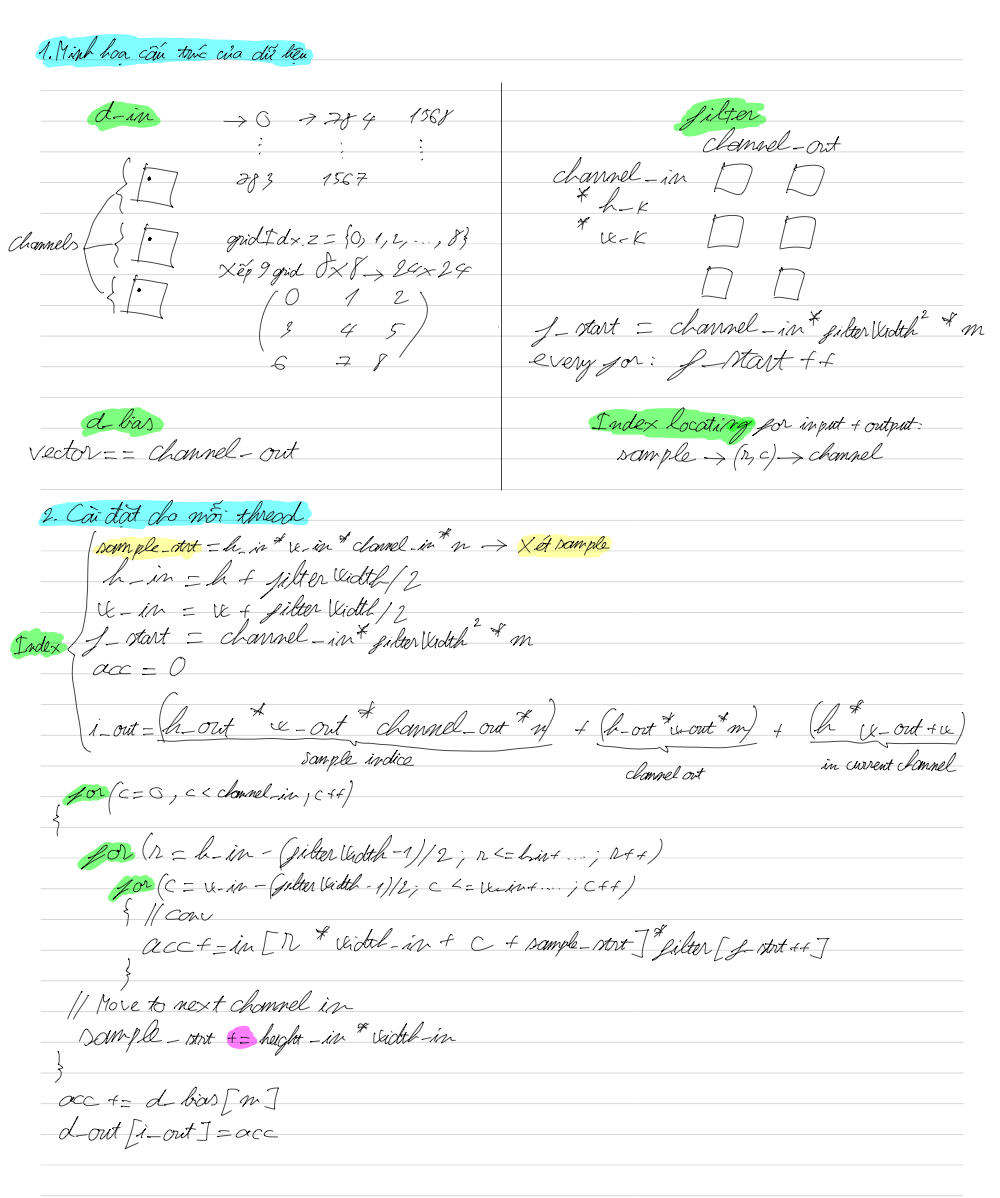 1. Minh hoạ cấu trúc của dữ liệu
d_in
→ 0 → 784 1568
⋮ ⋮ ⋮
783 1567
channels
gridIdx.z = {0, 1, 2, ..., 8}
Xếp 9 grid 8x8 → 24x24
0 1 2
3 4 5
6 7 8
d_bias
vector == channel_out
filter
channel_out
channel_in
* h_k
* w_k
f_start = channel_in * filterWidth² * m
every for: f_start ++
Index locating for input + output:
sample → (r, c) → channel
2. Cài đặt cho mỗi thread
Index
sample_strt = h_in * w_in * channel_in * n → Xét sample
h_in = h + filterWidth/2
w_in = w + filterWidth/2
f_start = channel_in * filterWidth² * m
acc = 0
i_out = (h_out * w_out * channel_out * n) + (h_out * w_out * m) + (h * w_out + w)
sample indice channel out in current channel
for (c=0, c<channel_in, c++)
{
for (r = h_in - (filterWidth-1)/2; r <= h_in+ ...; r++)
for (c = w_in - (filterWidth-1)/2; c <= w_in+...; c++)
{ // conv
acc += in [r * width_in + c + sample_strt] * filter [f_strt++]
}
// Move to next channel in
sample_strt += height_in * width_in
}
acc += d_bias [m]
d_out [i_out] = acc